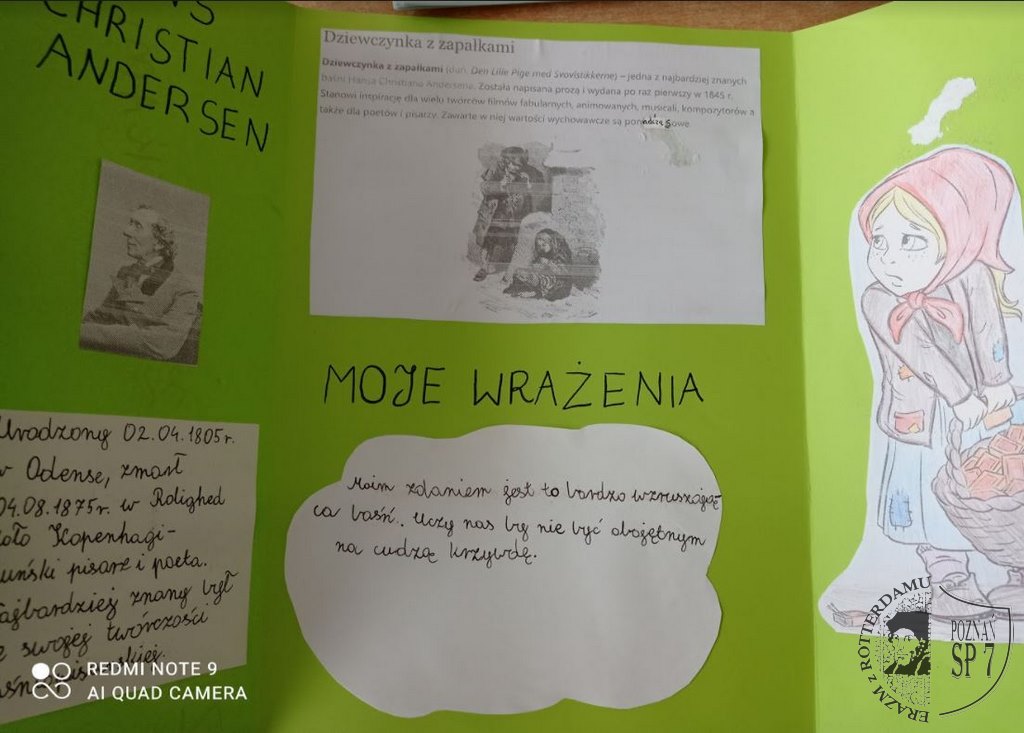 CHRISTIAN
ANDERSEN
Urodzony 02.04.1805r.
w Odense, zmarł
04.08.1875r. w Rolighed
koło Kopenhagi-
duński pisarz i poeta.
Najbardziej znany był
ze swojej twórczości
Dziewczynka z zapałkami
Dziewczynka z zapałkami (duń. Den Lille Pige med Svovlstikkerne) – jedna z najbardziej znanych
baśni Hansa Christiana Andersena. Została napisana prozą i wydana po raz pierwszy w 1845 r.
Stanowi inspirację dla wielu twórców filmów fabularnych, animowanych, musicali, kompozytorów a
także dla poetów i pisarzy. Zawarte w niej wartości wychowawcze są
MOJE WRAŻENIA
Moim zdaniem jest to bardzo wzruszają-
ca baśń. Uczy nas by nie być obojętnym
na cudzą krzywdę.
REDMI NOTE 9
AI QUAD CAMERA
ERAZM z ROTTERDAMU
POZNAŃ
SP 7